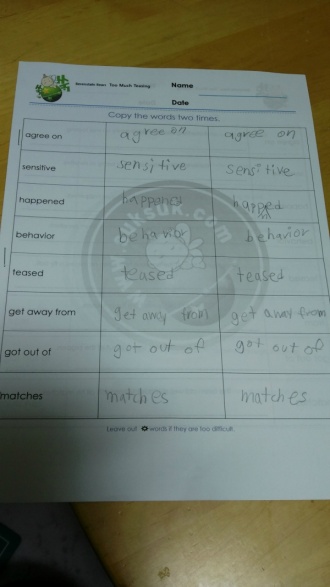 Too Much Teasing
Name
Date
Copy the words two times.
agree on agree on agree on
sensitive sensitive sensitive
happened happened happed
behavior behavior behavior
teased teased teased
get away from get away from get away from
got out of got out of got out of
matches matches matches
Leave out words if they are too difficult.